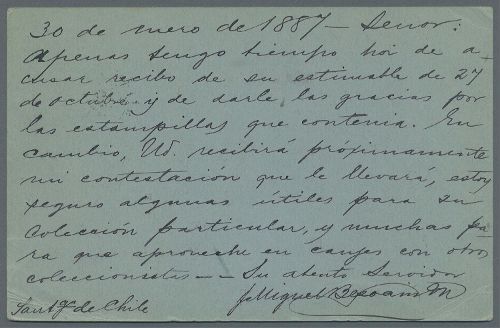 30 de enero de 1887 — Señor:
Apenas tengo tiempo hoi de a-
cusar recibo de su estimable de 27
de octubre y de darle las gracias por
las estampillas que contenia. En
cambio, Ud. recibirá próximamente
mi contestación que le llevará, estoy
seguro algunas útiles para su
colección particular, y muchas pa
ra que aproveche en canjes con otros
coleccionistas — Su atento Servidor
Miguel
Santgo de Chile